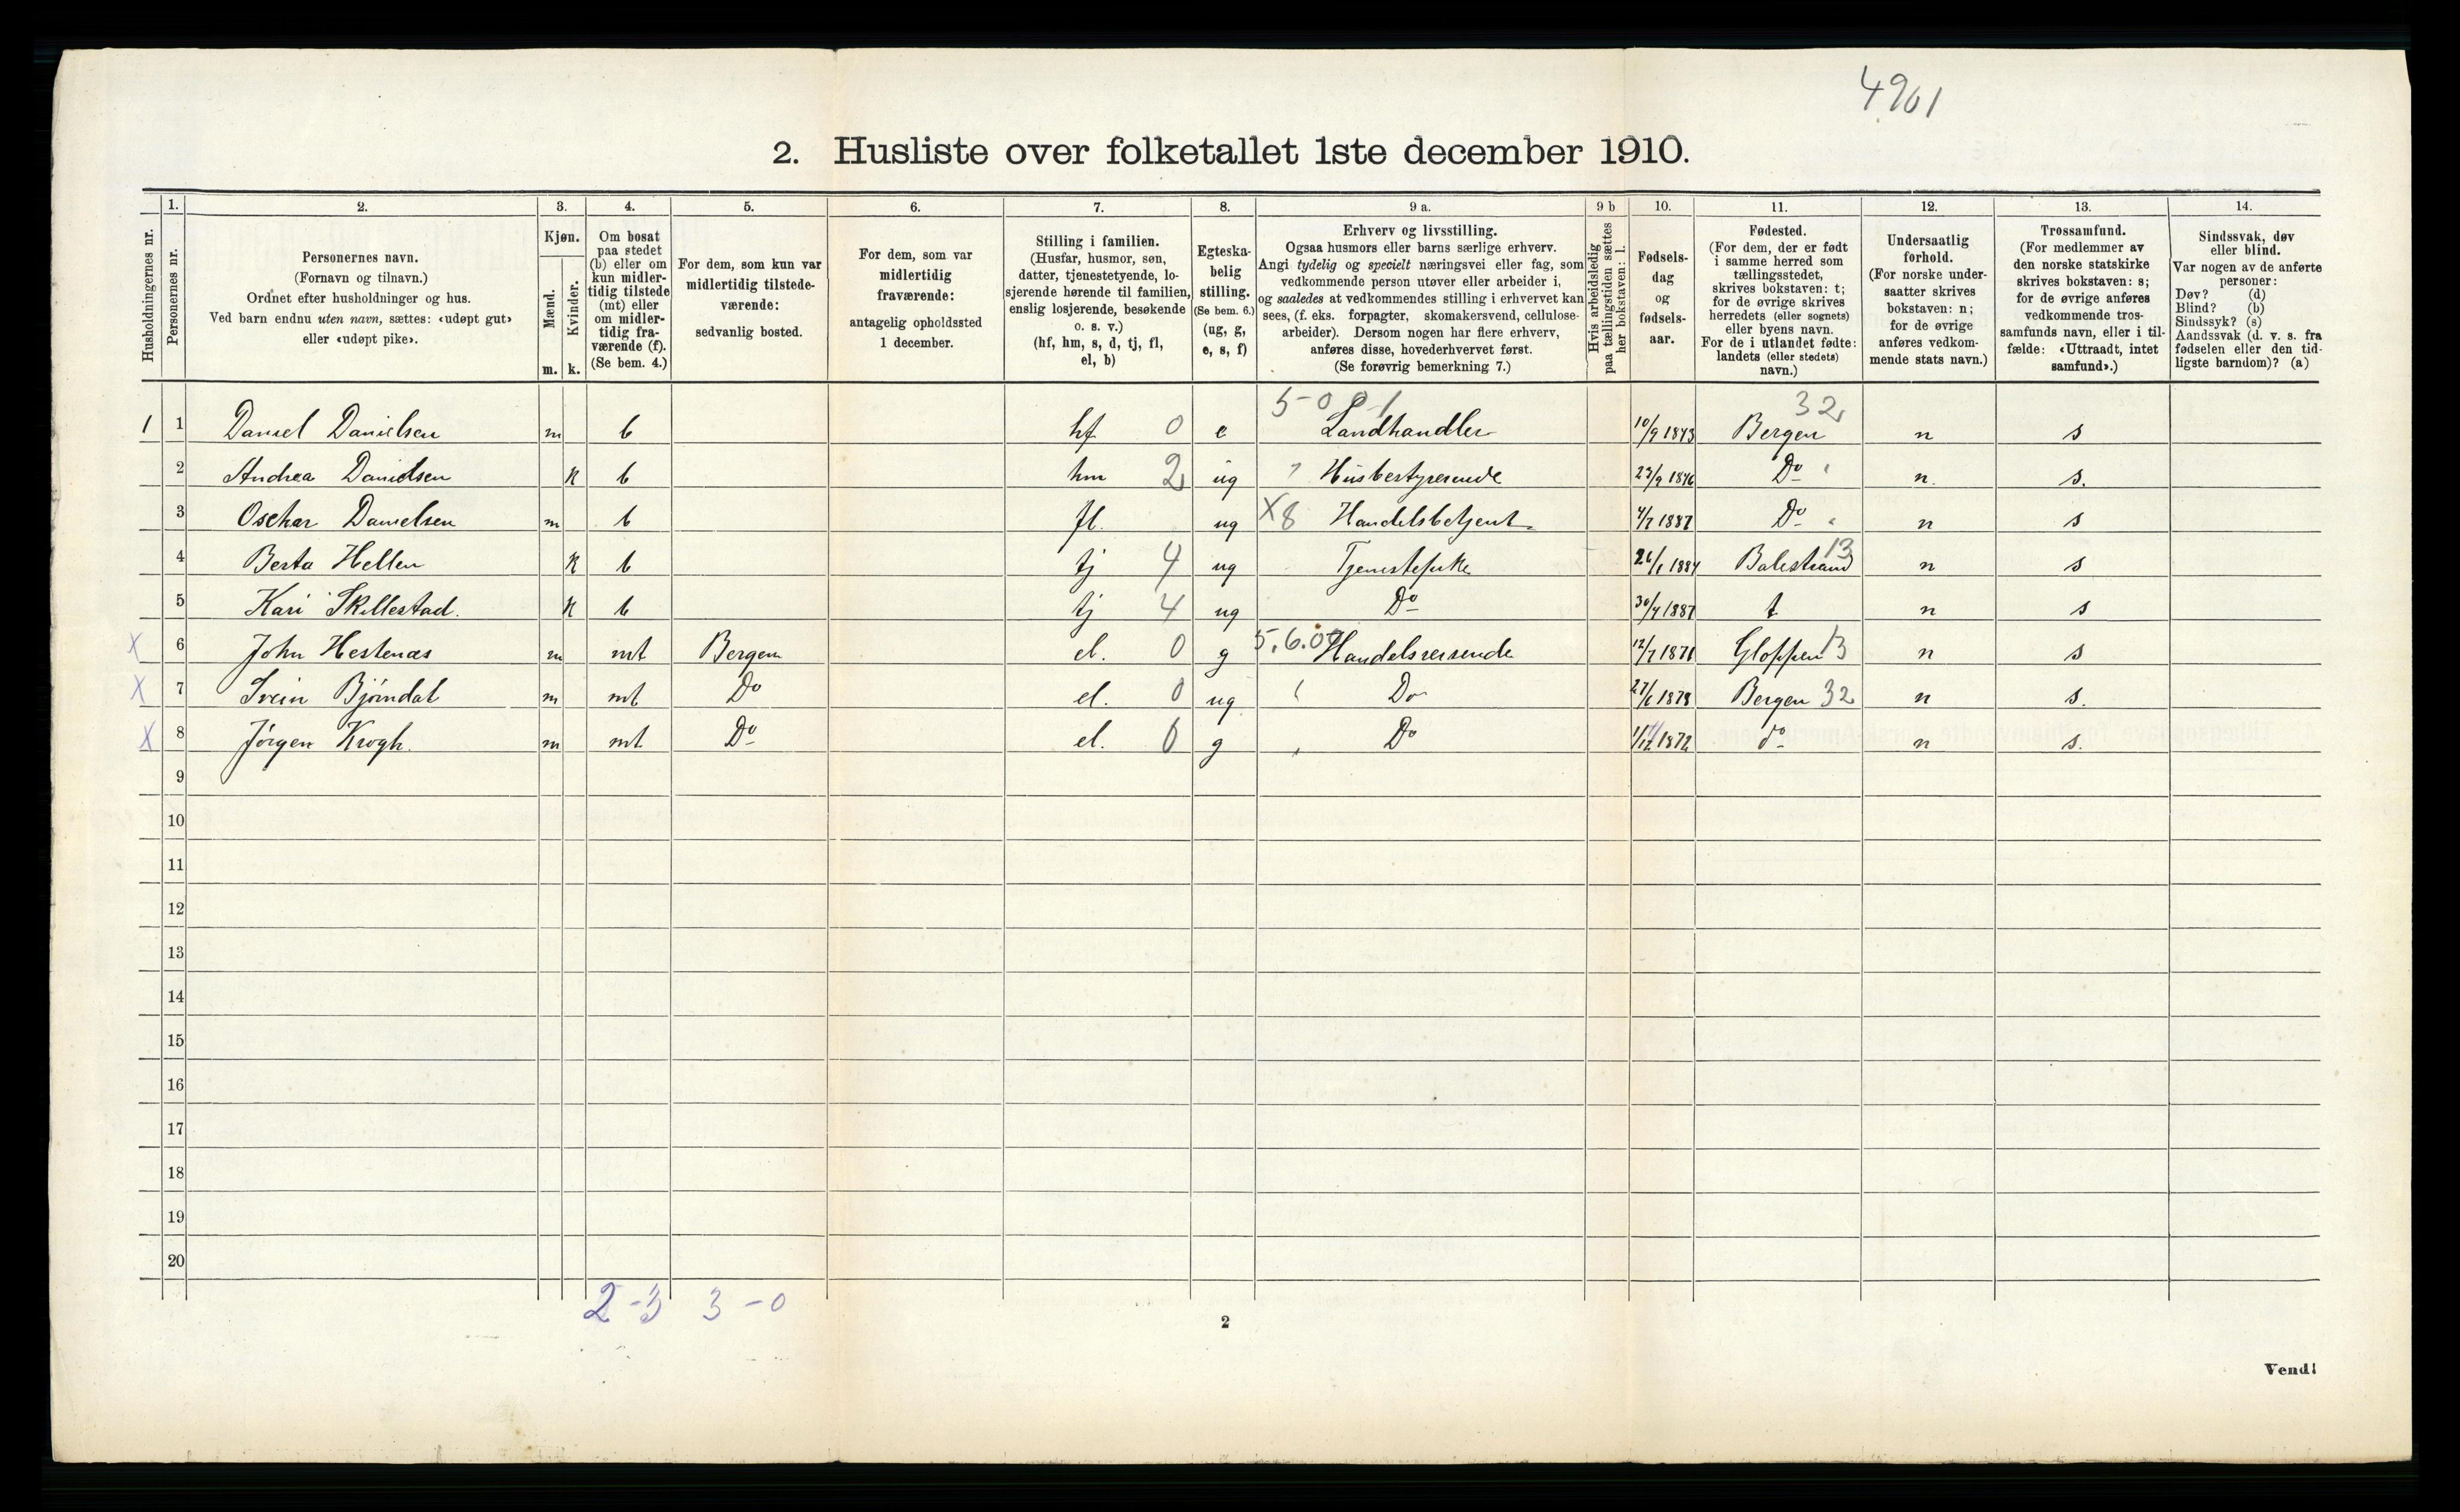 4901
2. Husliste over folketallet 1ste december 1910.
Husholdningernes nr.
1.
Personernes nr.
2.
Personernes navn.
(Fornavn og tilnavn.)
Ordnet efter husholdninger og hus.
Ved barn endnu uten navn, sættes: «udøpt gut»
eller «udøpt pike».
3.
Kjøn.
Mænd.
Kvinder.
m. k.
4.
Om bosat
paa stedet
(b) eller om
kun midler-
tidig tilstede
(mt) eller
om midler-
tidig fra-
værende (f).
(Se bem. 4.)
5.
For dem, som kun var
midlertidig tilstede-
værende:
sedvanlig bosted.
6.
For dem, som var
midlertidig
fraværende:
antagelig opholdssted
1 december.
7.
Stilling i familien.
(Husfar, husmor, søn,
datter, tjenestetyende, lo-
sjerende hørende til familien,
enslig losjerende, besøkende
o. s. v.)
(hf, hm, s, d, tj, fl,
el, b)
8.
Egteska-
belig
stilling.
(Se bem. 6.)
(ug, g,
e, s, f)
9 a.
Erhverv og livsstilling.
Ogsaa husmors eller barns særlige erhverv.
Angi tydelig og specielt næringsvei eller fag, som
vedkommende person utøver eller arbeider i,
og saaledes at vedkommendes stilling i erhvervet kan
sees, (f. eks. forpagter, skomakersvend, cellulose-
arbeider). Dersom nogen har flere erhverv,
anføres disse, hovederhvervet først.
(Se forøvrig bemerkning 7.)
9 b
Hvis arbeidsledig
paa tællingstiden sættes
her bokstaven: l.
10.
Fødsels-
dag
og
fødsels-
aar.
11.
Fødested.
(For dem, der er født
i samme herred som
tællingsstedet,
skrives bokstaven: t;
for de øvrige skrives
herredets (eller sognets)
eller byens navn.
For de i utlandet fødte:
landets (eller stedets)
navn.)
12.
Undersaatlig
forhold.
(For norske under-
saatter skrives
bokstaven: n;
for de øvrige
anføres vedkom-
mende stats navn.)
13.
Trossamfund.
(For medlemmer av
den norske statskirke
skrives bokstaven: s;
for de øvrige anføres
vedkommende tros-
samfunds navn, eller i til-
fælde: «Uttraadt, intet
samfund».)
14.
Sindssvak, døv
eller blind.
Var nogen av de anførte
personer:
Døv? (d)
Blind? (b)
Sindssyk? (s)
Aandssvak (d. v. s. fra
fødselen eller den tid-
ligste barndom)? (a)
1 1 Daniel Danielsen m b hf 0 e Landhandler 10/9 1843 Bergen 32 n s
2 Andrea Danielsen k b hm 2 ug Husbestyrerende 1846 Do n. s.
3 Oschar Danielsen m b fl. ug X8 Handelsbetjent 4/7 1887 Do n s
4 Berta Hellen k b tj 4 ug Tjenestepike 26/1 1884 Balestrand 13 n s
5 Kari Skillestad. k b tj 4 ug Do 30/4 1887 t n s
X 6 John Hestenæs m mt Bergen el. 0 g 5.6.0 Handelsreisende 12/7 1871 Gloppen 13 n s
X 7 Svein Bjørndal m mt Do el. 0 ug Do 27/6 1878 Bergen 32 n s.
X 8 Jørgen Krogh. m mt Do el. 0 g Do 1872 do n s.
9
10
11
12
13
14
15
16
17
18
19
20
2-3 3-0
2
Vend!